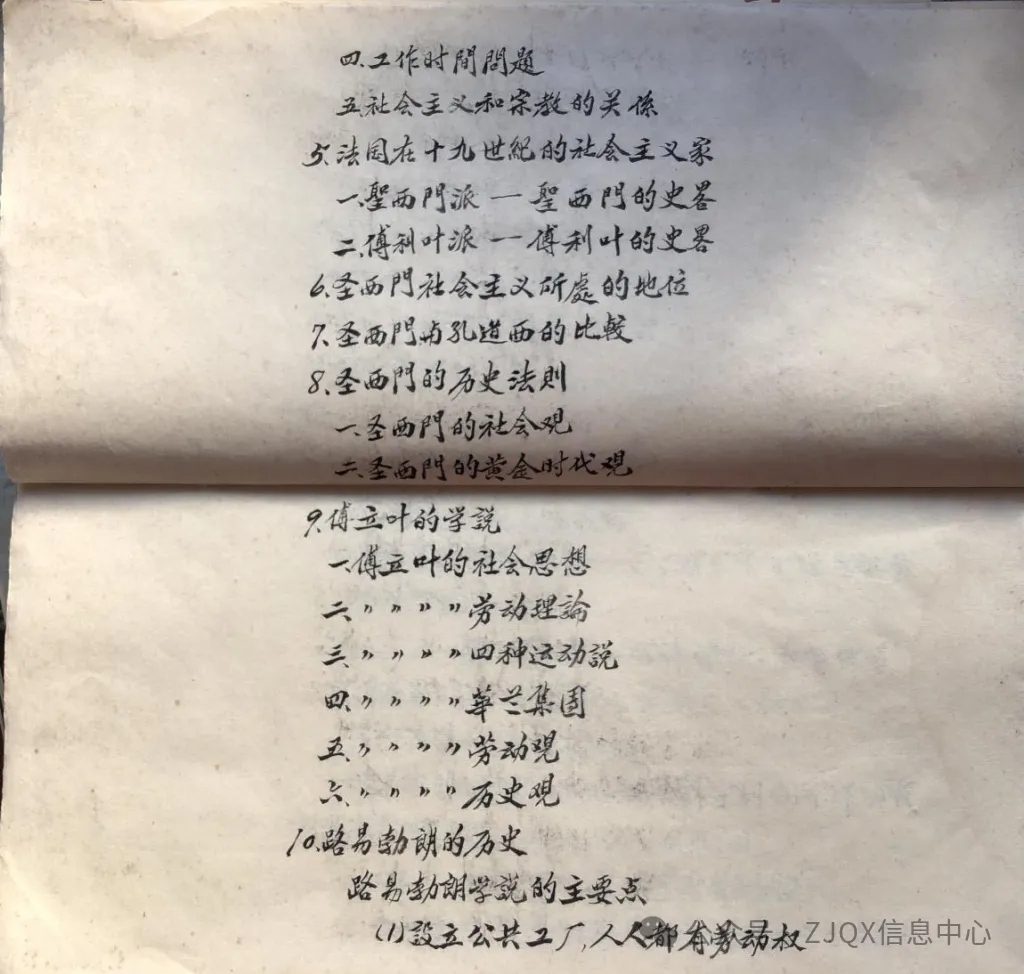 四、工作时間問題
五、社会主义和宗教的关係
5、法国在十九世紀的社会主义家
一、聖西門派 — 聖西門的史畧
二、傅利叶派 — 傅利叶的史畧
6、圣西門社会主义所處的地位
7、圣西門与孔道西的比較
8、圣西門的历史法則
一、圣西門的社会观
二、圣西門的黄金时代观
9、傅立叶的学説
一、傅立叶的社会思想
二、〃〃〃〃劳动理論
三、〃〃〃〃四种运动説
四、〃〃〃〃華兰集团
五、〃〃〃〃劳动观
六、〃〃〃〃历史观
10、路易勃朗的历史
路易勃朗学説的主要点
(1)設立公共工厂,人人都有劳动权
ZJQX信息中心